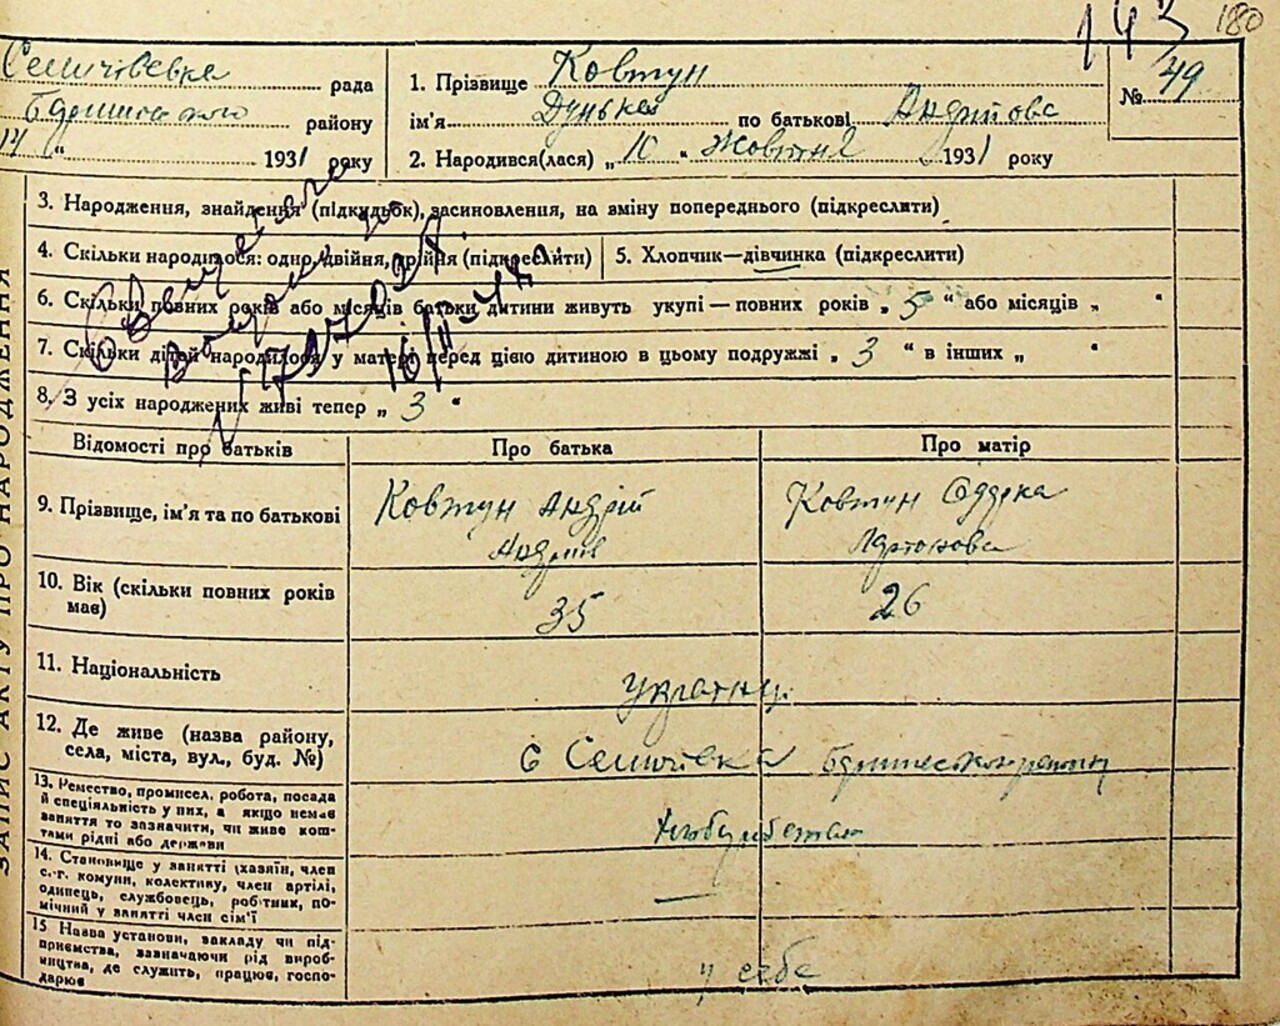 143 180
рада
району
14 " 1931 року
1. Прізвище Ковтун
ім'я Дунька по батькові Андрійова
2. Народився(лася) „ 10 “ Жовтня 1931 року
№ 49
3. Народження, знайдення (підкидьок), засиновлення, на зміну попереднього (підкреслити)
4. Скільки народилося: одно, двійня, трійня (підкреслити)
5. Хлопчик—дівчинка (підкреслити)
6. Скільки повних років або місяців батьки дитини живуть укупі — повних років „ 5 “ або місяців „ “
7. Скільки дітей народилося у матері перед цією дитиною в цьому подружжі „ 3 “ в інших „ “
8. З усіх народжених живі тепер „ 3 “
Відомості про батьків
Про батька
Про матір
9. Прізвище, ім'я та по батькові
Ковтун Андрій
Андріїв
Ковтун
10. Вік (скільки повних років
має)
35
26
11. Національність
українці
12. Де живе (назва району,
села, міста, вул., буд. №)
с
13. Ремество, промисел, робота, посада
й спеціяльність у них, а якщо немає
заняття то зазначити, чи живе кош-
тами рідні або держави
14. Становище у занятті (хазяїн, член
с.-г. комуни, колективу, член артілі,
одинець, службовець, робітник, по-
мічний у занятті член сім'ї
—
15 Назва установи, закладу чи під-
приємства, зазначаючи рід вироб-
ництва, де служить, працює, госпо-
дарює
у себе
ЗАПИС АКТУ ПРО НАРОДЖЕННЯ